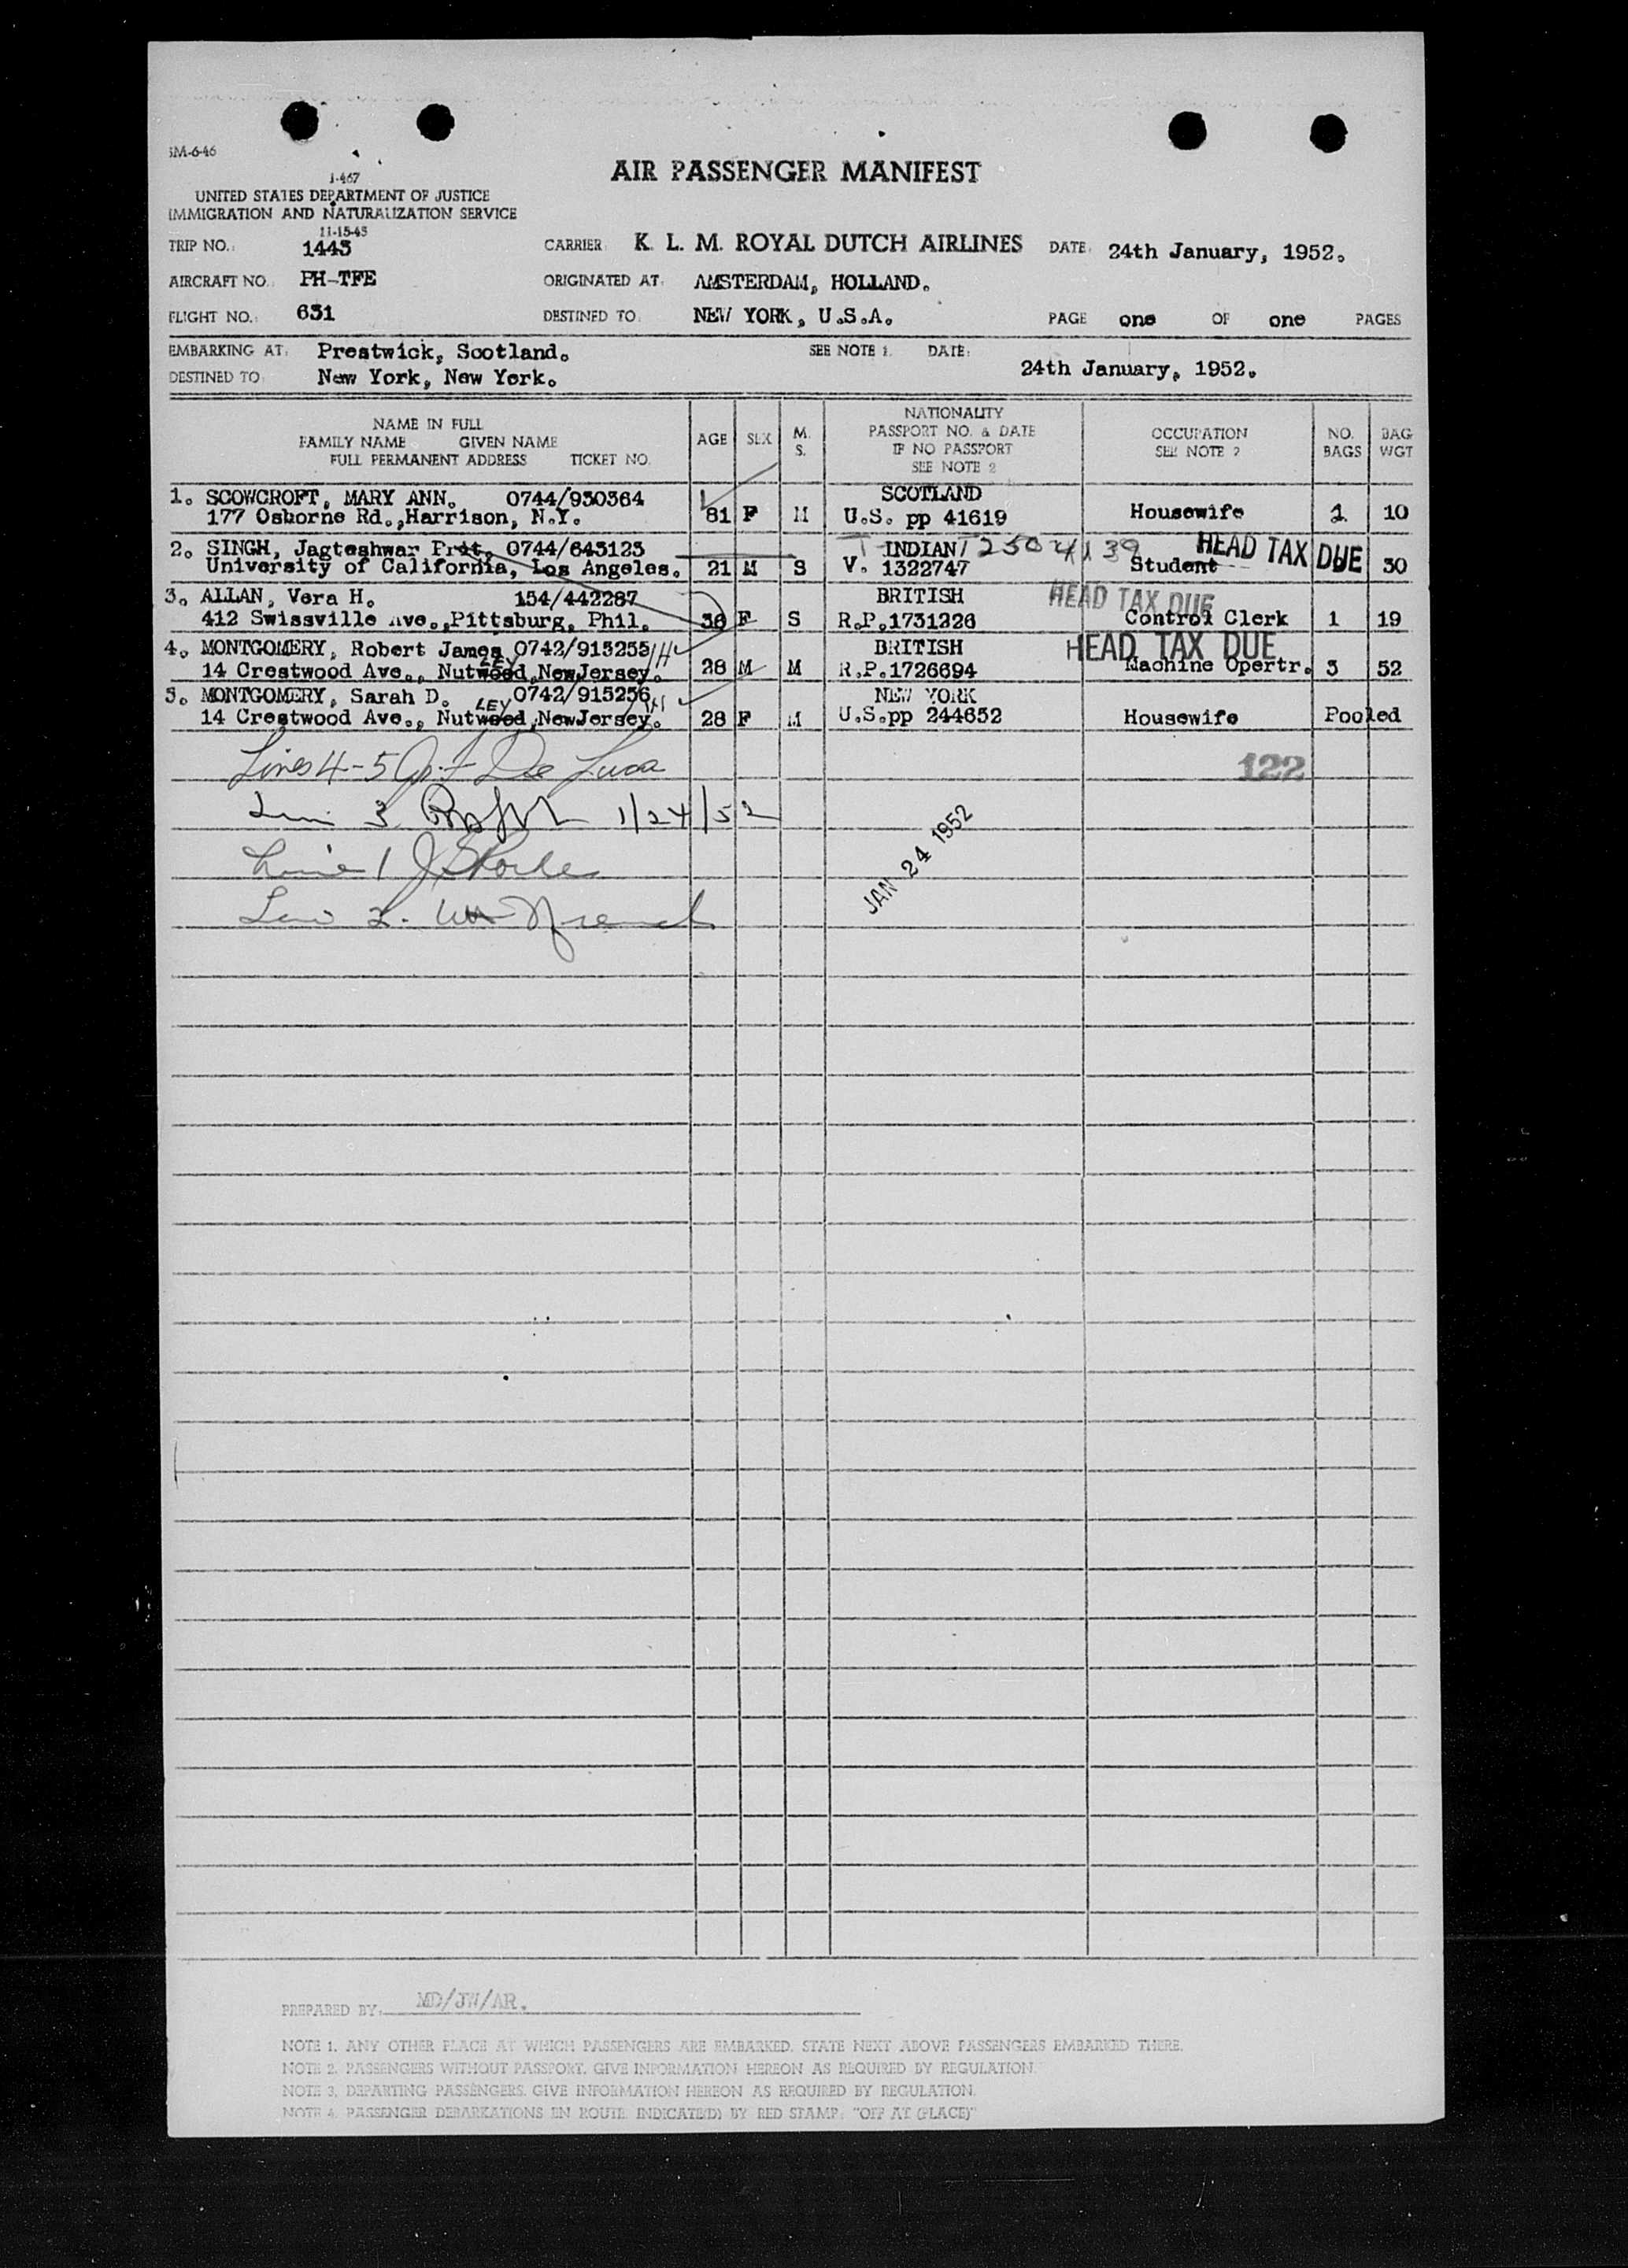 3M-6-46
I-467
AIR PASSENGER MANIFEST
UNITED STATES DEPARTMENT OF JUSTICE
IMMIGRATION AND NATURALIZATION SERVICE
11-15-45
TRIP NO.: 1443 CARRIER: K. L. M. ROYAL DUTCH AIRLINES DATE: 24th January, 1952.
AIRCRAFT NO.: PH-TFE ORIGINATED AT: AMSTERDAM, HOLLAND.
FLIGHT NO.: 631 DESTINED TO: NEW YORK, U.S.A. PAGE one OF one PAGES
EMBARKING AT: Prestwick, Scotland. SEE NOTE 1. DATE:
DESTINED TO: New York, New York. 24th January, 1952.
NAME IN FULL
FAMILY NAME GIVEN NAME
FULL PERMANENT ADDRESS TICKET NO.
AGE SEX M. S.
NATIONALITY
PASSPORT NO. & DATE
IF NO PASSPORT
SEE NOTE 2
OCCUPATION
SEE NOTE 2
NO. BAGS
BAG WGT
1. SCOWCROFT, MARY ANN. 0744/930364 SCOTLAND
177 Osborne Rd.,Harrison, N.Y. 81 F M U.S. pp 41619 Housewife 1 10
2. SINGH, Jagteshwar Prit. 0744/643123 INDIAN T 2504139 HEAD TAX DUE
University of California, Los Angeles. 21 M S V. 1322747 Student 30
3. ALLAN, Vera H. 154/442287 BRITISH HEAD TAX DUE
412 Swissville Ave.,Pittsburg, Phil. 36 F S R.P.1731226 Control Clerk 1 19
4. MONTGOMERY, Robert James 0742/915255 BRITISH HEAD TAX DUE
LEY
14 Crestwood Ave., Nutwood,NewJersey. 28 M M R.P.1726694 Machine Opertr. 3 52
5. MONTGOMERY, Sarah D. 0742/915256 NEW YORK
LEY
14 Crestwood Ave., Nutwood,NewJersey. 28 F M U.S.pp 244652 Housewife Pooled
Lines 4-5 De Luca
122
Line 3 1/24/52
JAN 24 1952
Line 1
Line 2.
PREPARED BY: MD/JW/AR.
NOTE 1. ANY OTHER PLACE AT WHICH PASSENGERS ARE EMBARKED, STATE NEXT ABOVE PASSENGERS EMBARKED THERE.
NOTE 2. PASSENGERS WITHOUT PASSPORT, GIVE INFORMATION HEREON AS REQUIRED BY REGULATION.
NOTE 3. DEPARTING PASSENGERS, GIVE INFORMATION HEREON AS REQUIRED BY REGULATION.
NOTE 4. PASSENGER DEBARKATIONS EN ROUTE INDICATE(D) BY RED STAMP: "OFF AT (PLACE)"